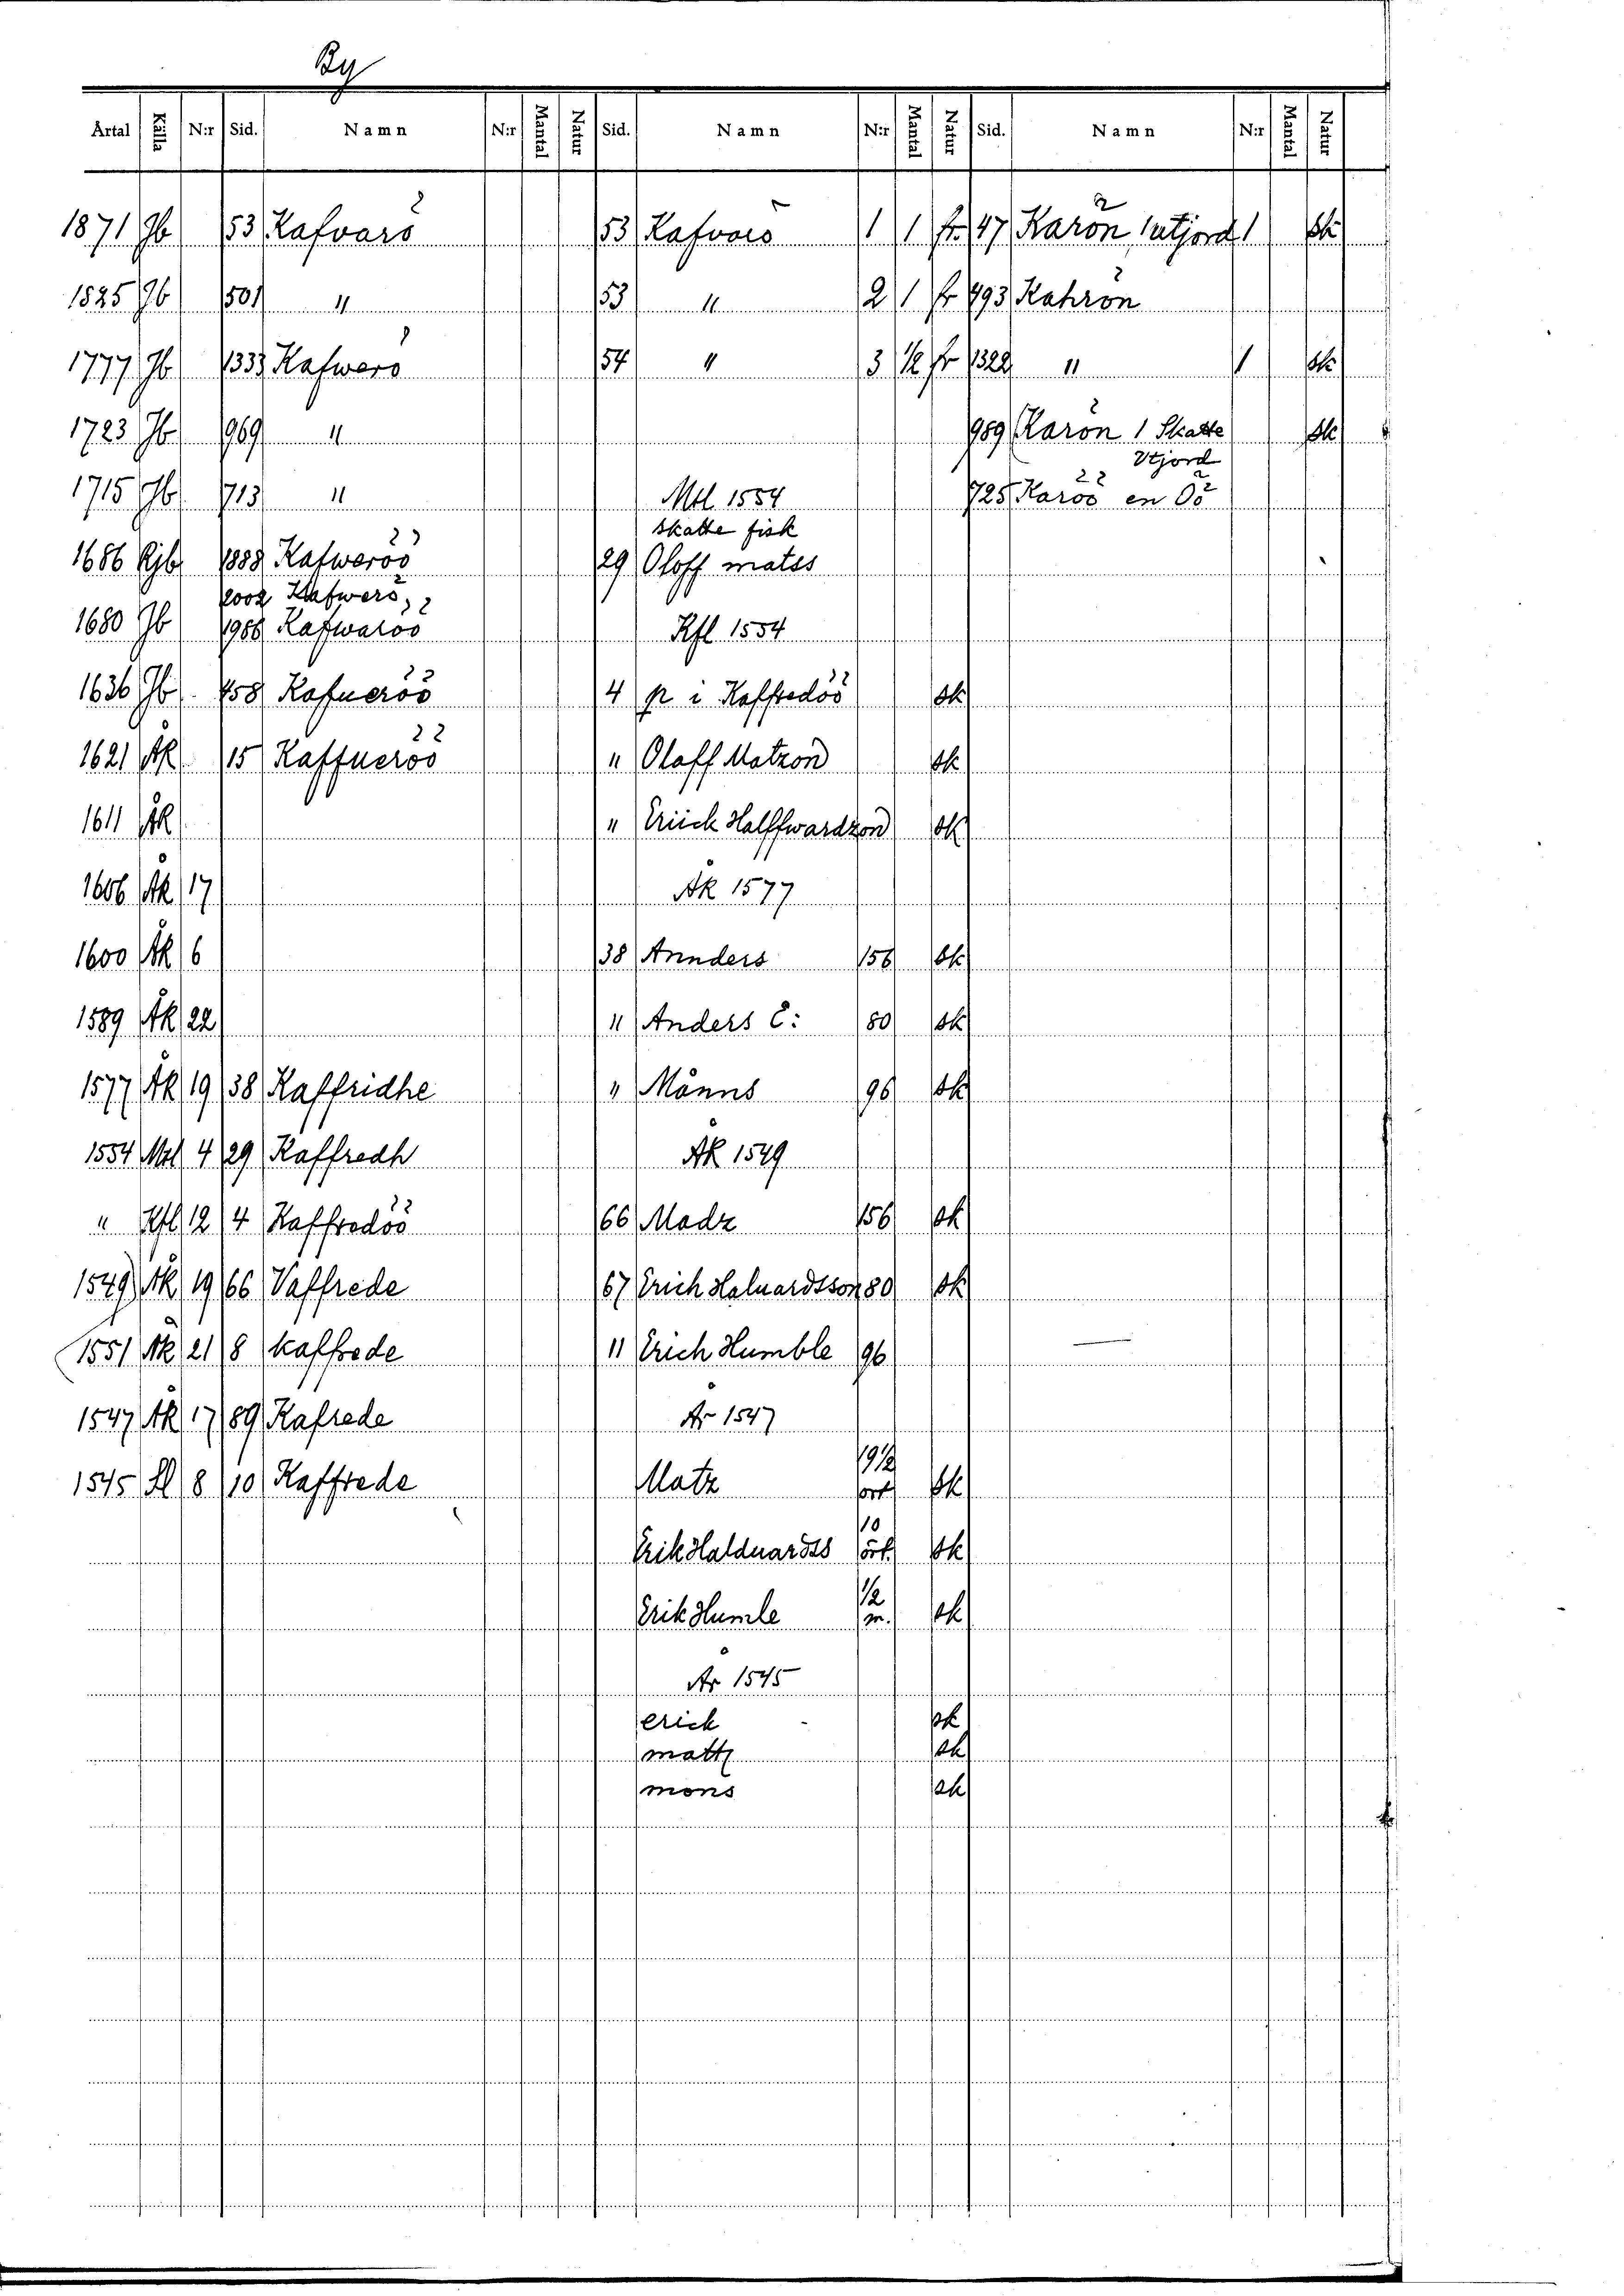 By
Årtal Källa N:r Sid. Namn N:r Mantal Natur Sid. Namn N:r Mantal Natur Sid. Namn N:r Mantal Natur
1871 Jb 53 Kafvarö 53 Kafvarö 1 1 fr. 47 Karön 1 utjord 1 sk
1825 Jb 501 " 53 " 2 1 fr 493 Kahrön
1777 Jb 1333 Kafwerö 54 " 3 1/2 fr 1322 " 1 sk
1723 Jb 969 " 989 Karön 1 Skatte sk
Utjord
1715 Jb 713 " Mtl 1554 725 Karöö en Öö
skatte fisk
1686 Rjb 1888 Kafweröö 29 Oloff matss
2002 Kafwerö
1680 Jb 1986 Kafwaröö Kfl 1554
1636 Jb 458 Kafueröö 4 p i Kaffredöö sk
1621 ÅK 15 Kaffueröö " Olaff Matzon sk
1611 ÅK " Eriick Halffwardzon sk
1606 ÅK 17 ÅK 1577
1600 ÅK 6 38 Annders 156 sk
1589 ÅK 22 " Anders E: 80 sk
1577 ÅK 19 38 Kaffridhe " Månns 96 sk
1554 Mtl 4 29 Kaffredh ÅK 1549
" Kfl 12 4 Kaffredöö 66 Madz 156 sk
1549 ÅK 19 66 Vaffrede 67 Erich Haluardsson 80 sk
1551 ÅK 21 8 kaffrede " Erich Humble 96
1547 ÅK 17 89 Kafrede År 1547
1545 Sl 8 10 Kaffrede Matz 19 1/2 ört sk
Erik Halduardss 10 ört. sk
Erik Humle 1/2 m. sk
År 1545
erick sk
mattz sk
mons sk